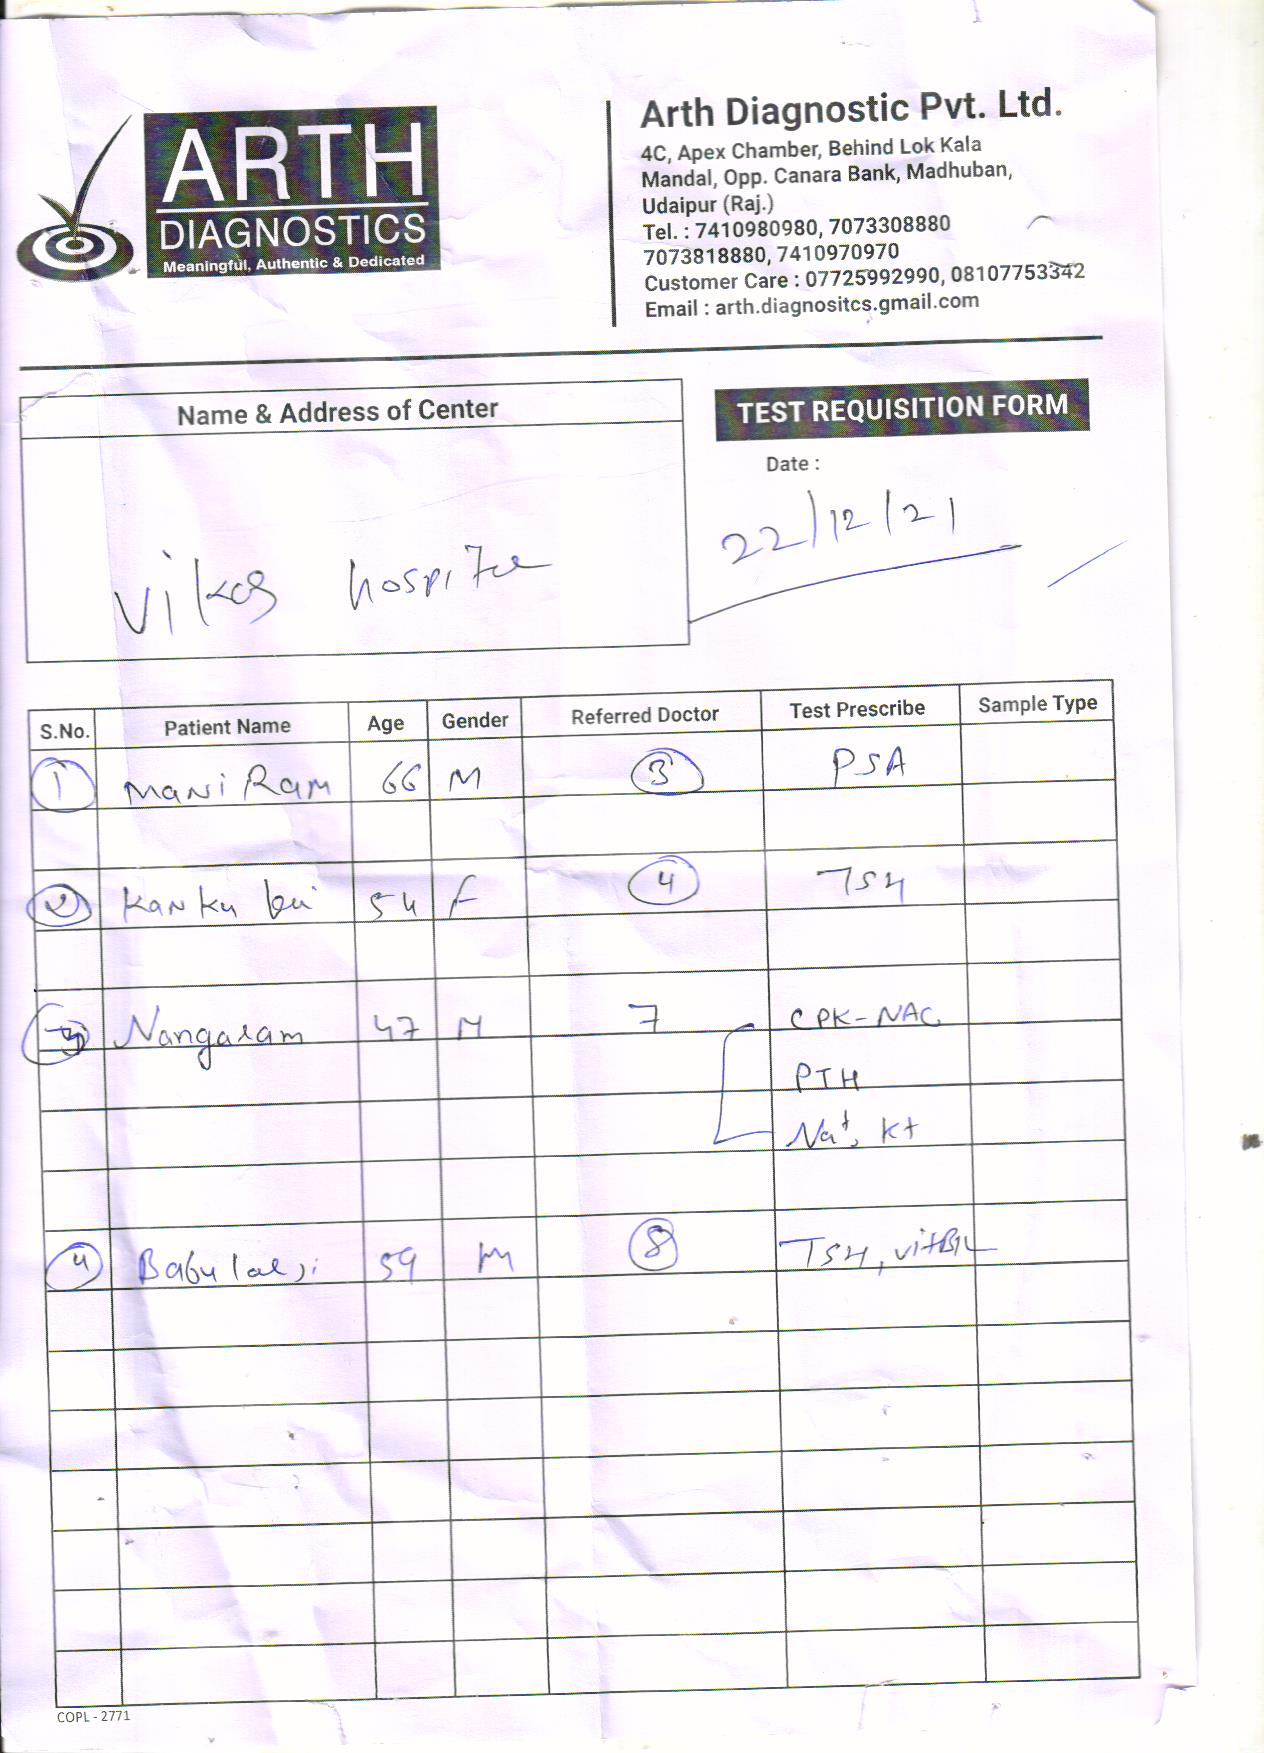 ARTH
DIAGNOSTICS
Meaningful, Authentic & Dedicated
Arth Diagnostic Pvt. Ltd.
4C, Apex Chamber, Behind Lok Kala
Mandal, Opp. Canara Bank, Madhuban,
Udaipur (Raj.)
Tel. : 7410980980, 7073308880
7073818880, 7410970970
Customer Care : 07725992990, 08107753342
Email : arth.diagnositcs.gmail.com
Name & Address of Center
TEST REQUISITION FORM
Date :
22/12/21
Vikas hospital
S.No. Patient Name Age Gender Referred Doctor Test Prescribe Sample Type
1 Mani Ram 66 M 3 PSA
2 Kanku bai 54 F 4 TSH
3 Nangaram 47 M 7 CPK-NAC
PTH
Na+, K+
4 Babulal ji 59 M 8 TSH, vitB12
COPL - 2771